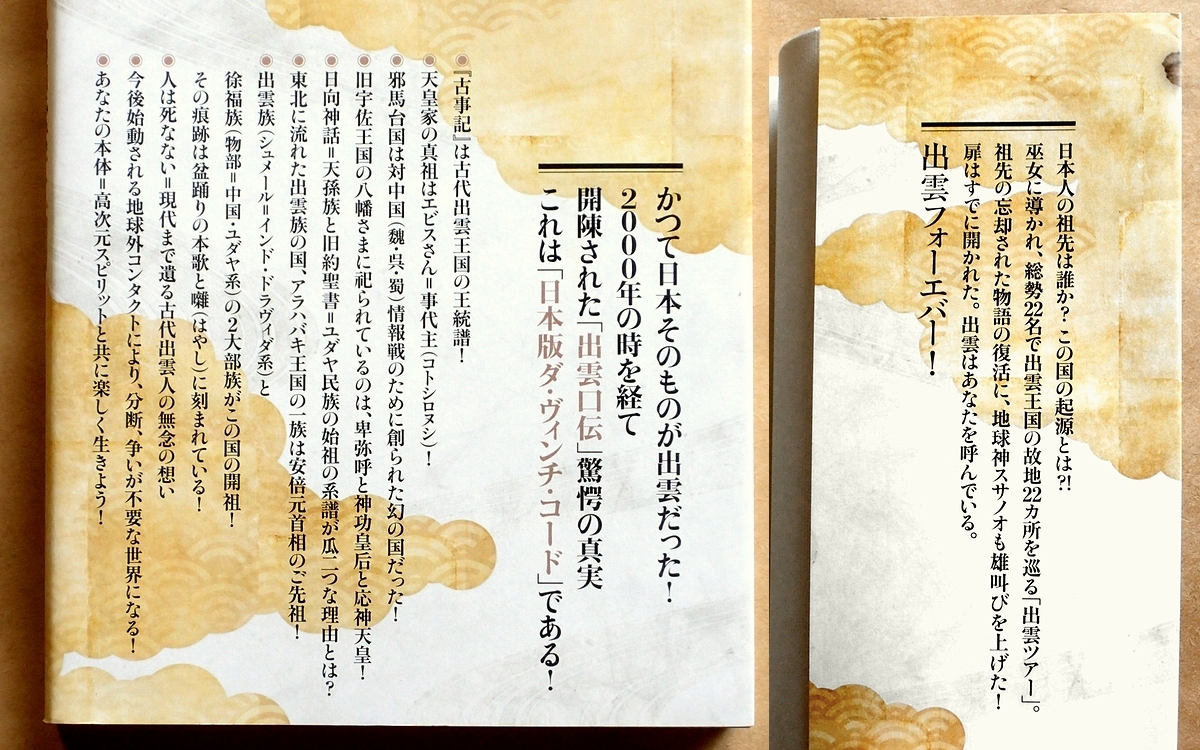 かつて日本そのものが出雲だった！
2000年の時を経て
開陳された「出雲口伝」驚愕の真実
これは「日本版ダ・ヴィンチ・コード」である！
◉『古事記』は古代出雲王国の王統譜！
◉天皇家の真祖はエビスさん＝事代主（コトシロヌシ）！
◉邪馬台国は対中国（魏・呉・蜀）情報戦のために創られた幻の国だった！
◉旧宇佐王国の八幡さまに祀られているのは、卑弥呼と神功皇后と応神天皇！
◉日向神話＝天孫族と旧約聖書＝ユダヤ民族の始祖の系譜が瓜二つな理由とは？
◉東北に流れた出雲族の国、アラハバキ王国の一族は安倍元首相のご先祖！
◉出雲族（シュメール＝インド・ドラヴィダ系）と
徐福族（物部＝中国・ユダヤ系）の２大部族がこの国の開祖！
その痕跡は盆踊りの本歌と囃（はやし）に刻まれている！
◉人は死なない＝現代まで遺る古代出雲人の無念の想い
◉今後始動される地球外コンタクトにより、分断、争いが不要な世界になる！
◉あなたの本体＝高次元スピリットと共に楽しく生きよう！
日本人の祖先は誰か？ この国の起源とは?!
巫女に導かれ、総勢22名で出雲王国の故地22カ所を巡る「出雲ツアー」。
祖先の忘却された物語の復活に、地球神スサノオも雄叫びを上げた！
扉はすでに開かれた。出雲はあなたを呼んでいる。
出雲フォーエバー！